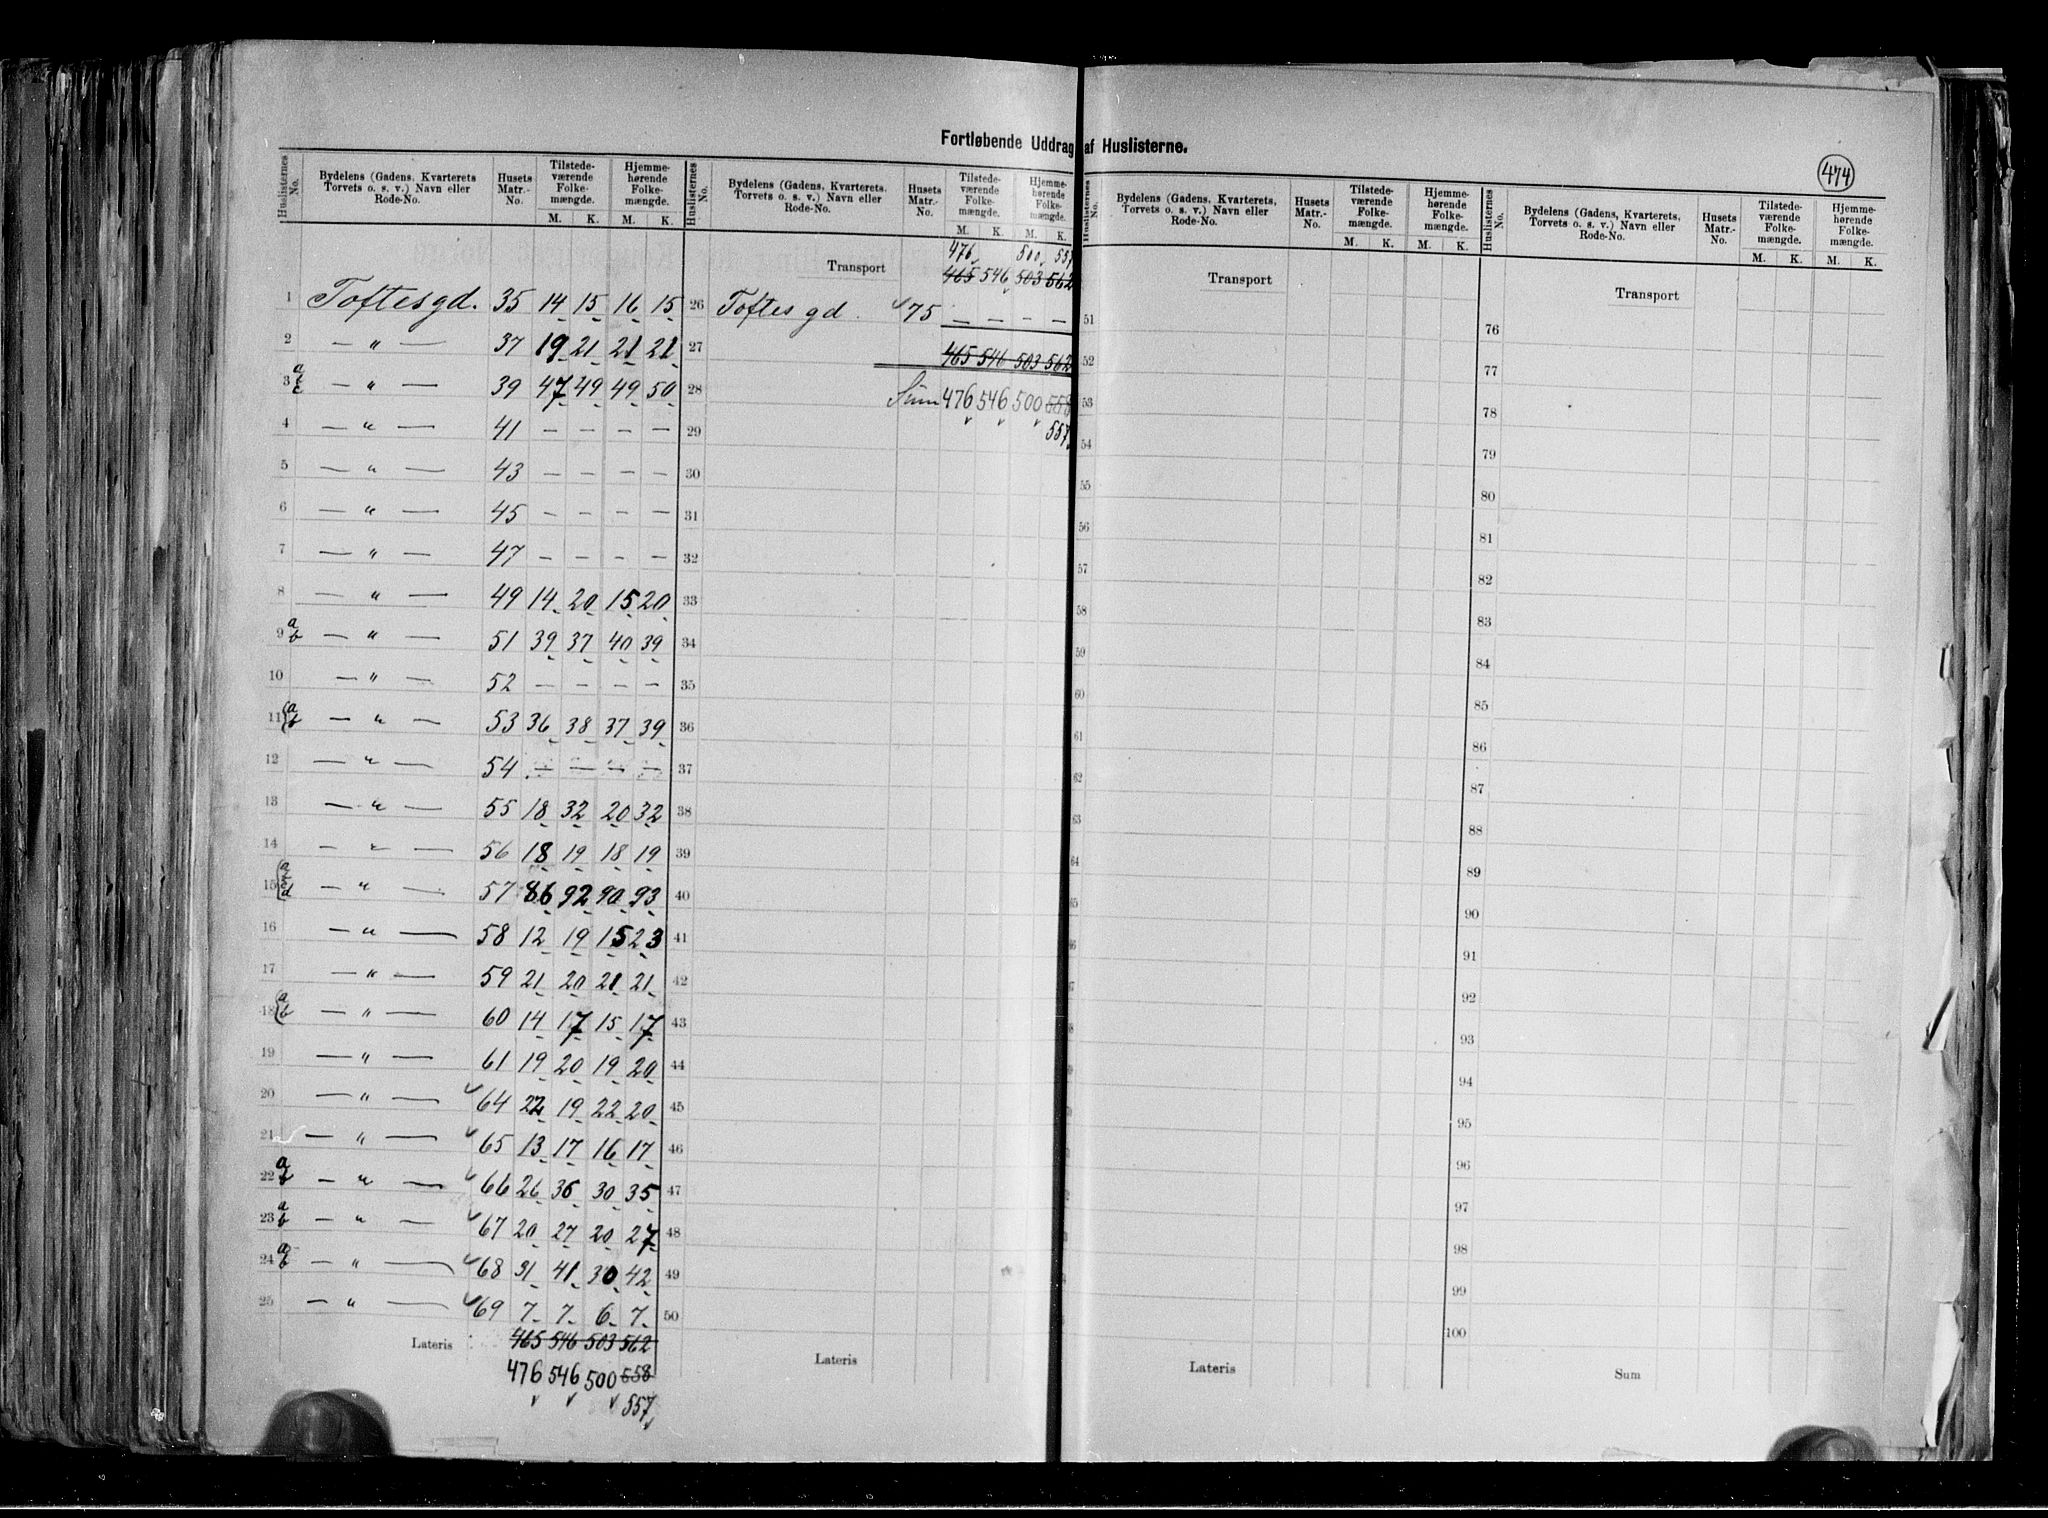 Fortløbende Uddrag af Huslisterne.
474
Huslisternes No. Bydelens (Gadens, Kvarterets Torvets o. s. v.) Navn eller Rode-No. Husets Matr.-No. Tilstede-værende Folke-mængde. M. K. Hjemme-hørende Folke-mængde. M. K.
1 Toftesgd. 35 14 15 16 15
2 — " — 37 19 21 21 21
3 a b c — " — 39 47 49 49 50
4 — " — 41 — — — —
5 — " — 43 — — — —
6 — " — 45 — — — —
7 — " — 47 — — — —
8 — " — 49 14 20 15 20
9 a b — " — 51 39 37 40 39
10 — " — 52 — — — —
11 a b — " — 53 36 38 37 39
12 — " — 54 — — — —
13 — " — 55 18 32 20 32
14 — " — 56 18 19 18 19
15 a b c d — " — 57 86 92 90 93
16 — " — 58 12 19 15 23
17 — " — 59 21 20 21 21
18 a b — " — 60 14 17 15 17
19 — " — 61 19 20 19 20
20 — " — 64 22 19 22 20
21 — " — 65 13 17 16 17
22 a b — " — 66 26 36 30 35
23 a b — " — 67 20 27 20 27
24 a b — " — 68 31 41 30 42
25 — " — 69 7 7 6 7
Lateris 465 546 503 562
476 546 500 558
557
Huslisternes No. Bydelens (Gadens, Kvarterets, Torvets o. s. v.) Navn eller Rode-No. Husets Matr.-No. Tilstede-værende Folke-mængde. M. K. Hjemme-hørende Folke-mængde. M. K.
476 500 557
Transport 465 546 503 562
26 Toftes gd. 75 — — — —
27 465 546 503 562
28 Sum 476 546 500 558
29 557
30
31
32
33
34
35
36
37
38
39
40
41
42
43
44
45
46
47
48
49
50
Lateris
Huslisternes No. Bydelens (Gadens, Kvarterets, Torvets o. s. v.) Navn eller Rode-No. Husets Matr.-No. Tilstede-værende Folke-mængde. M. K. Hjemme-hørende Folke-mængde. M. K.
Transport
51
52
53
54
55
56
57
58
59
60
61
62
63
64
65
66
67
68
Lateris
Huslisternes No. Bydelens (Gadens, Kvarterets, Torvets o. s. v.) Navn eller Rode-No. Husets Matr.-No. Tilstede-værende Folke-mængde. M. K. Hjemme-hørende Folke-mængde. M. K.
Transport
76
77
78
79
80
81
82
83
84
85
86
87
88
89
90
91
92
93
94
95
96
97
98
99
100
Sum